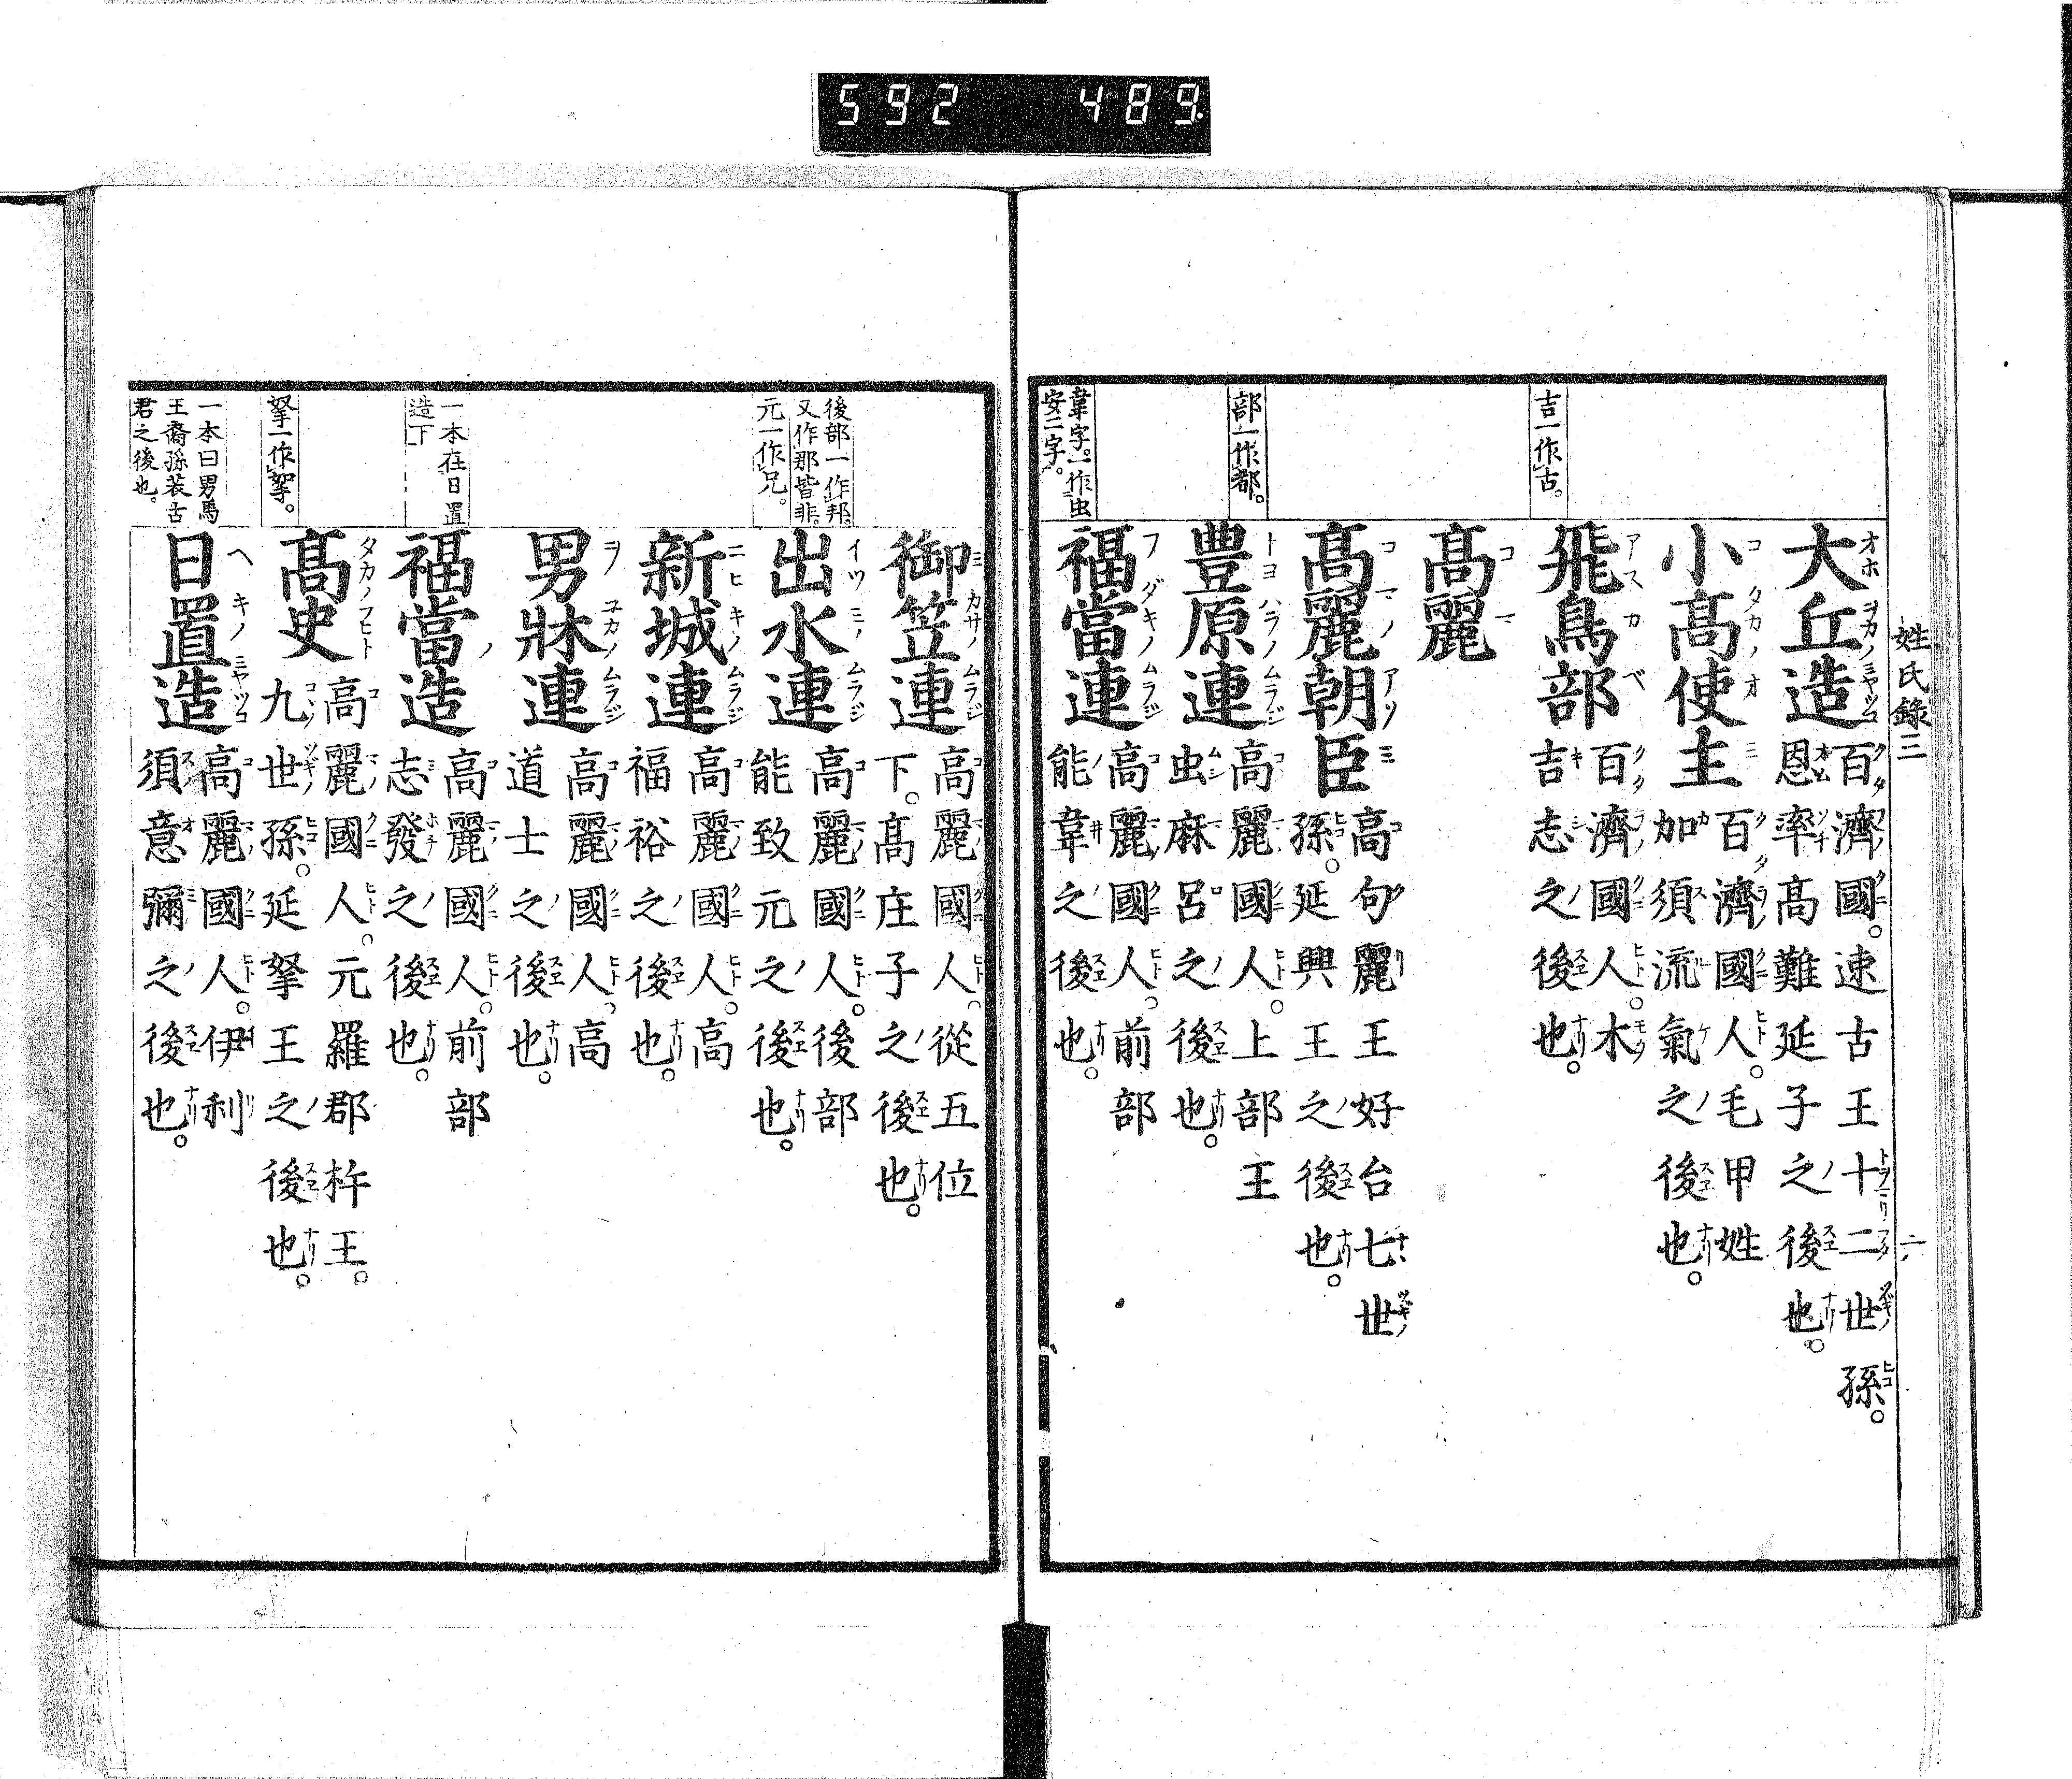 592 489
姓氏錄三
六
大丘造 百濟國。速古王十二世孫。
恩率高難延子之後也。
小高使主 百濟國人。毛甲姓
加須流氣之後也。
吉一作古。
飛鳥部 百濟國人。木
吉志之後也。
高麗
高麗朝臣 高句麗王好台七世
孫。延興王之後也。
部一作都。
豊原連 高麗國人。上部王
虫麻呂之後也。
韋字。一作虫
安二字。
福當連 高麗國人。前部
能韋之後也。
御笠連 高麗國人。從五位
下。高庄子之後也。
後部一作邦。
又作那皆非。
元一作兄。
出水連 高麗國人。後部
能致元之後也。
新城連 高麗國人。高
福裕之後也。
男牀連 高麗國人。高
道士之後也。
一本在日置
造下
福當造 高麗國人。前部
志發之後也。
拏一作挐。
高史 高麗國人。元羅郡杵王。
九世孫。延拏王之後也。
一本曰男馬
王裔孫裝古
君之後也。
日置造 高麗國人。伊利
須意彌之後也。